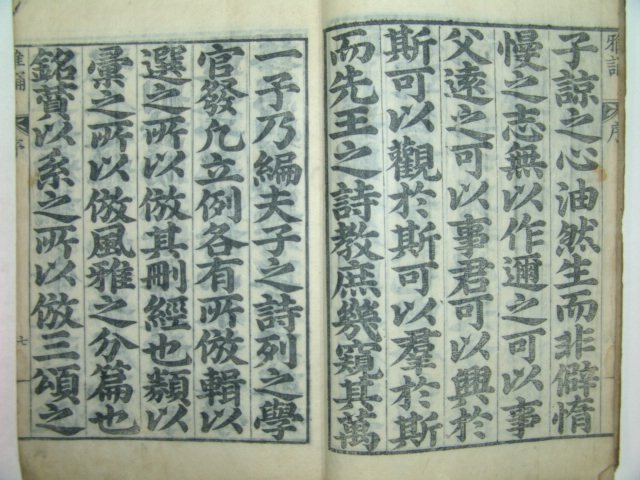 子諒之心油然生而非僻惰
慢之志無以作邇之可以事
父遠之可以事君可以興於
斯可以觀於斯可以羣於斯
而先王之詩教庶幾窺其萬
一子乃編夫子之詩列之學
官發凡立例各有所倣輯以
選之所以倣其刪經也類以
彙之所以倣風雅之分篇也
銘賛以系之所以倣三頌之
雅誦
序
雅誦
序
七